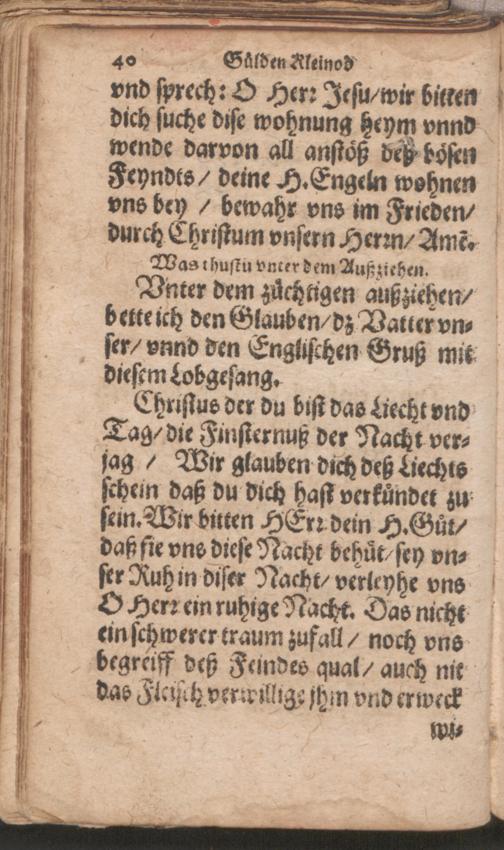 40 Gülden Kleinod
vnd sprech: O Herr Jesu/wir bitten
dich suche dise wohnung heym vnnd
wende darvon all anstöß deß bösen
Feyndts / deine H. Engeln wohnen
vns bey / bewahr vns im Frieden/
durch Christum vnsern Herrn/ Amē.
Was thustu vnter dem Außziehen.
Vnter dem züchtigen außziehen/
bette ich den Glauben/dz Vatter vn-
ser/ vnnd den Englischen Gruß mit
diesem Lobgesang.
Christus der du bist das Liecht vnd
Tag/ die Finsternuß der Nacht ver-
jag / Wir glauben dich deß Liechts
schein daß du dich hast verkündet zu
sein. Wir bitten HErr dein H. Güt/
daß sie vns diese Nacht behüt/ sey vn-
ser Ruh in diser Nacht/ verleyhe vns
O Herr ein ruhige Nacht. Das nicht
ein schwerer traum zufall / noch vns
begreiff deß Feindes qual/ auch nit
das Fleisch verwillige jhm vnd erweck
wi-